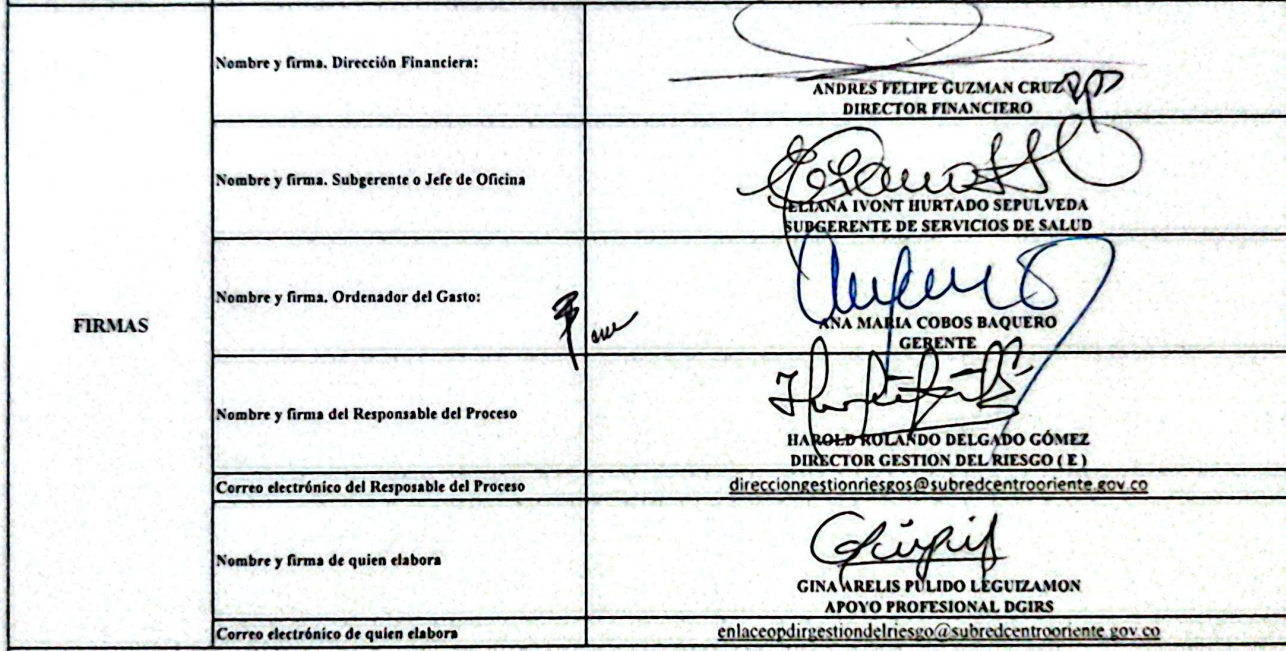 FIRMAS
Nombre y firma. Dirección Financiera:
ANDRES FELIPE GUZMAN CRUZ
DIRECTOR FINANCIERO
Nombre y firma. Subgerente o Jefe de Oficina
ELIANA IVONT HURTADO SEPULVEDA
SUBGERENTE DE SERVICIOS DE SALUD
Nombre y firma. Ordenador del Gasto:
ANA MARIA COBOS BAQUERO
GERENTE
Nombre y firma del Responsable del Proceso
HAROLD ROLANDO DELGADO GÓMEZ
DIRECTOR GESTION DEL RIESGO ( E )
Correo electrónico del Resposable del Proceso
direcciongestionriesgos@subredcentrooriente.gov.co
Nombre y firma de quien elabora
GINA ARELIS PULIDO LEGUIZAMON
APOYO PROFESIONAL DGIRS
Correo electrónico de quien elabora
enlaceopdirgestiondelriesgo@subredcentrooriente.gov.co